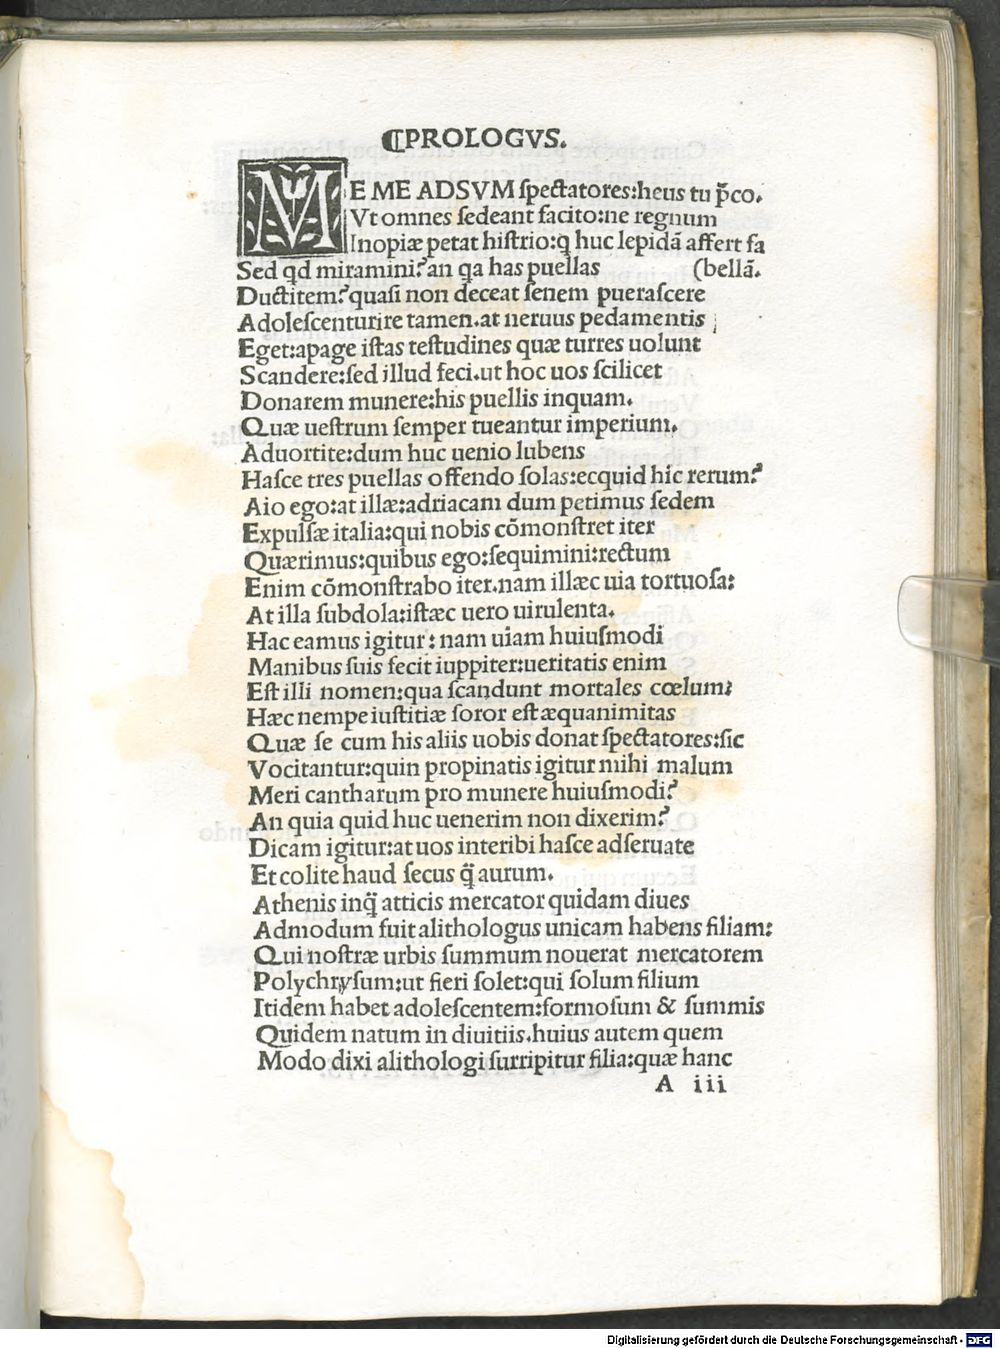 ⸿PROLOGVS.
ME ME ADSVM ſpectatores:heus tu p̄co.
Vt omnes ſedeant facito:ne regnum
Inopiæ petat hiſtrio:q̇ huc lepidã affert fa
Sed qd miramini?an qa has puellas (bellã.
Ductitem?quaſi non deceat ſenem pueraſcere
Adoleſcenturire tamen.at neruus pedamentis
Eget:apage iſtas teſtudines quæ turres uolunt
Scandere:ſed illud feci.ut hoc uos ſcilicet
Donarem munere:his puellis inquam.
Quæ ueſtrum ſemper tueantur imperium.
Aduortite:dum huc uenio lubens
Haſce tres puellas offendo ſolas:ecquid hic rerum?
Aio ego:at illæ:adriacam dum petimus ſedem
Expulſæ italia:qui nobis cõmonſtret iter
Quærimus:quibus ego:ſequimini:rectum
Enim cõmonſtrabo iter.nam illæc uia tortuoſa:
At illa ſubdola:iſtæc uero uirulenta.
Hac eamus igitur: nam uiam huiuſmodi
Manibus ſuis fecit iuppiter:ueritatis enim
Eſt illi nomen:qua ſcandunt mortales cœlum:
Hæc nempe iuſtitiæ ſoror eſt æquanimitas
Quæ ſe cum his aliis uobis donat ſpectatores:ſic
Vocitantur:quin propinatis igitur mihi malum
Meri cantharum pro munere huiuſmodi?
An quia quid huc uenerim non dixerim?
Dicam igitur:at uos interibi haſce adſeruate
Et colite haud ſecus q̃ aurum.
Athenis inq̃ atticis mercator quidam diues
Admodum fuit alithologus unicam habens filiam:
Qui noſtræ urbis ſummum nouerat mercatorem
Polychryſum:ut fieri ſolet:qui ſolum filium
Itidem habet adoleſcentem:formoſum & ſummis
Quidem natum in diuitiis.huius autem quem
Modo dixi alithologi ſurripitur filia:quæ hanc
A iii
Digitalisierung gefördert durch die Deutsche Forschungsgemeinschaft - DFG